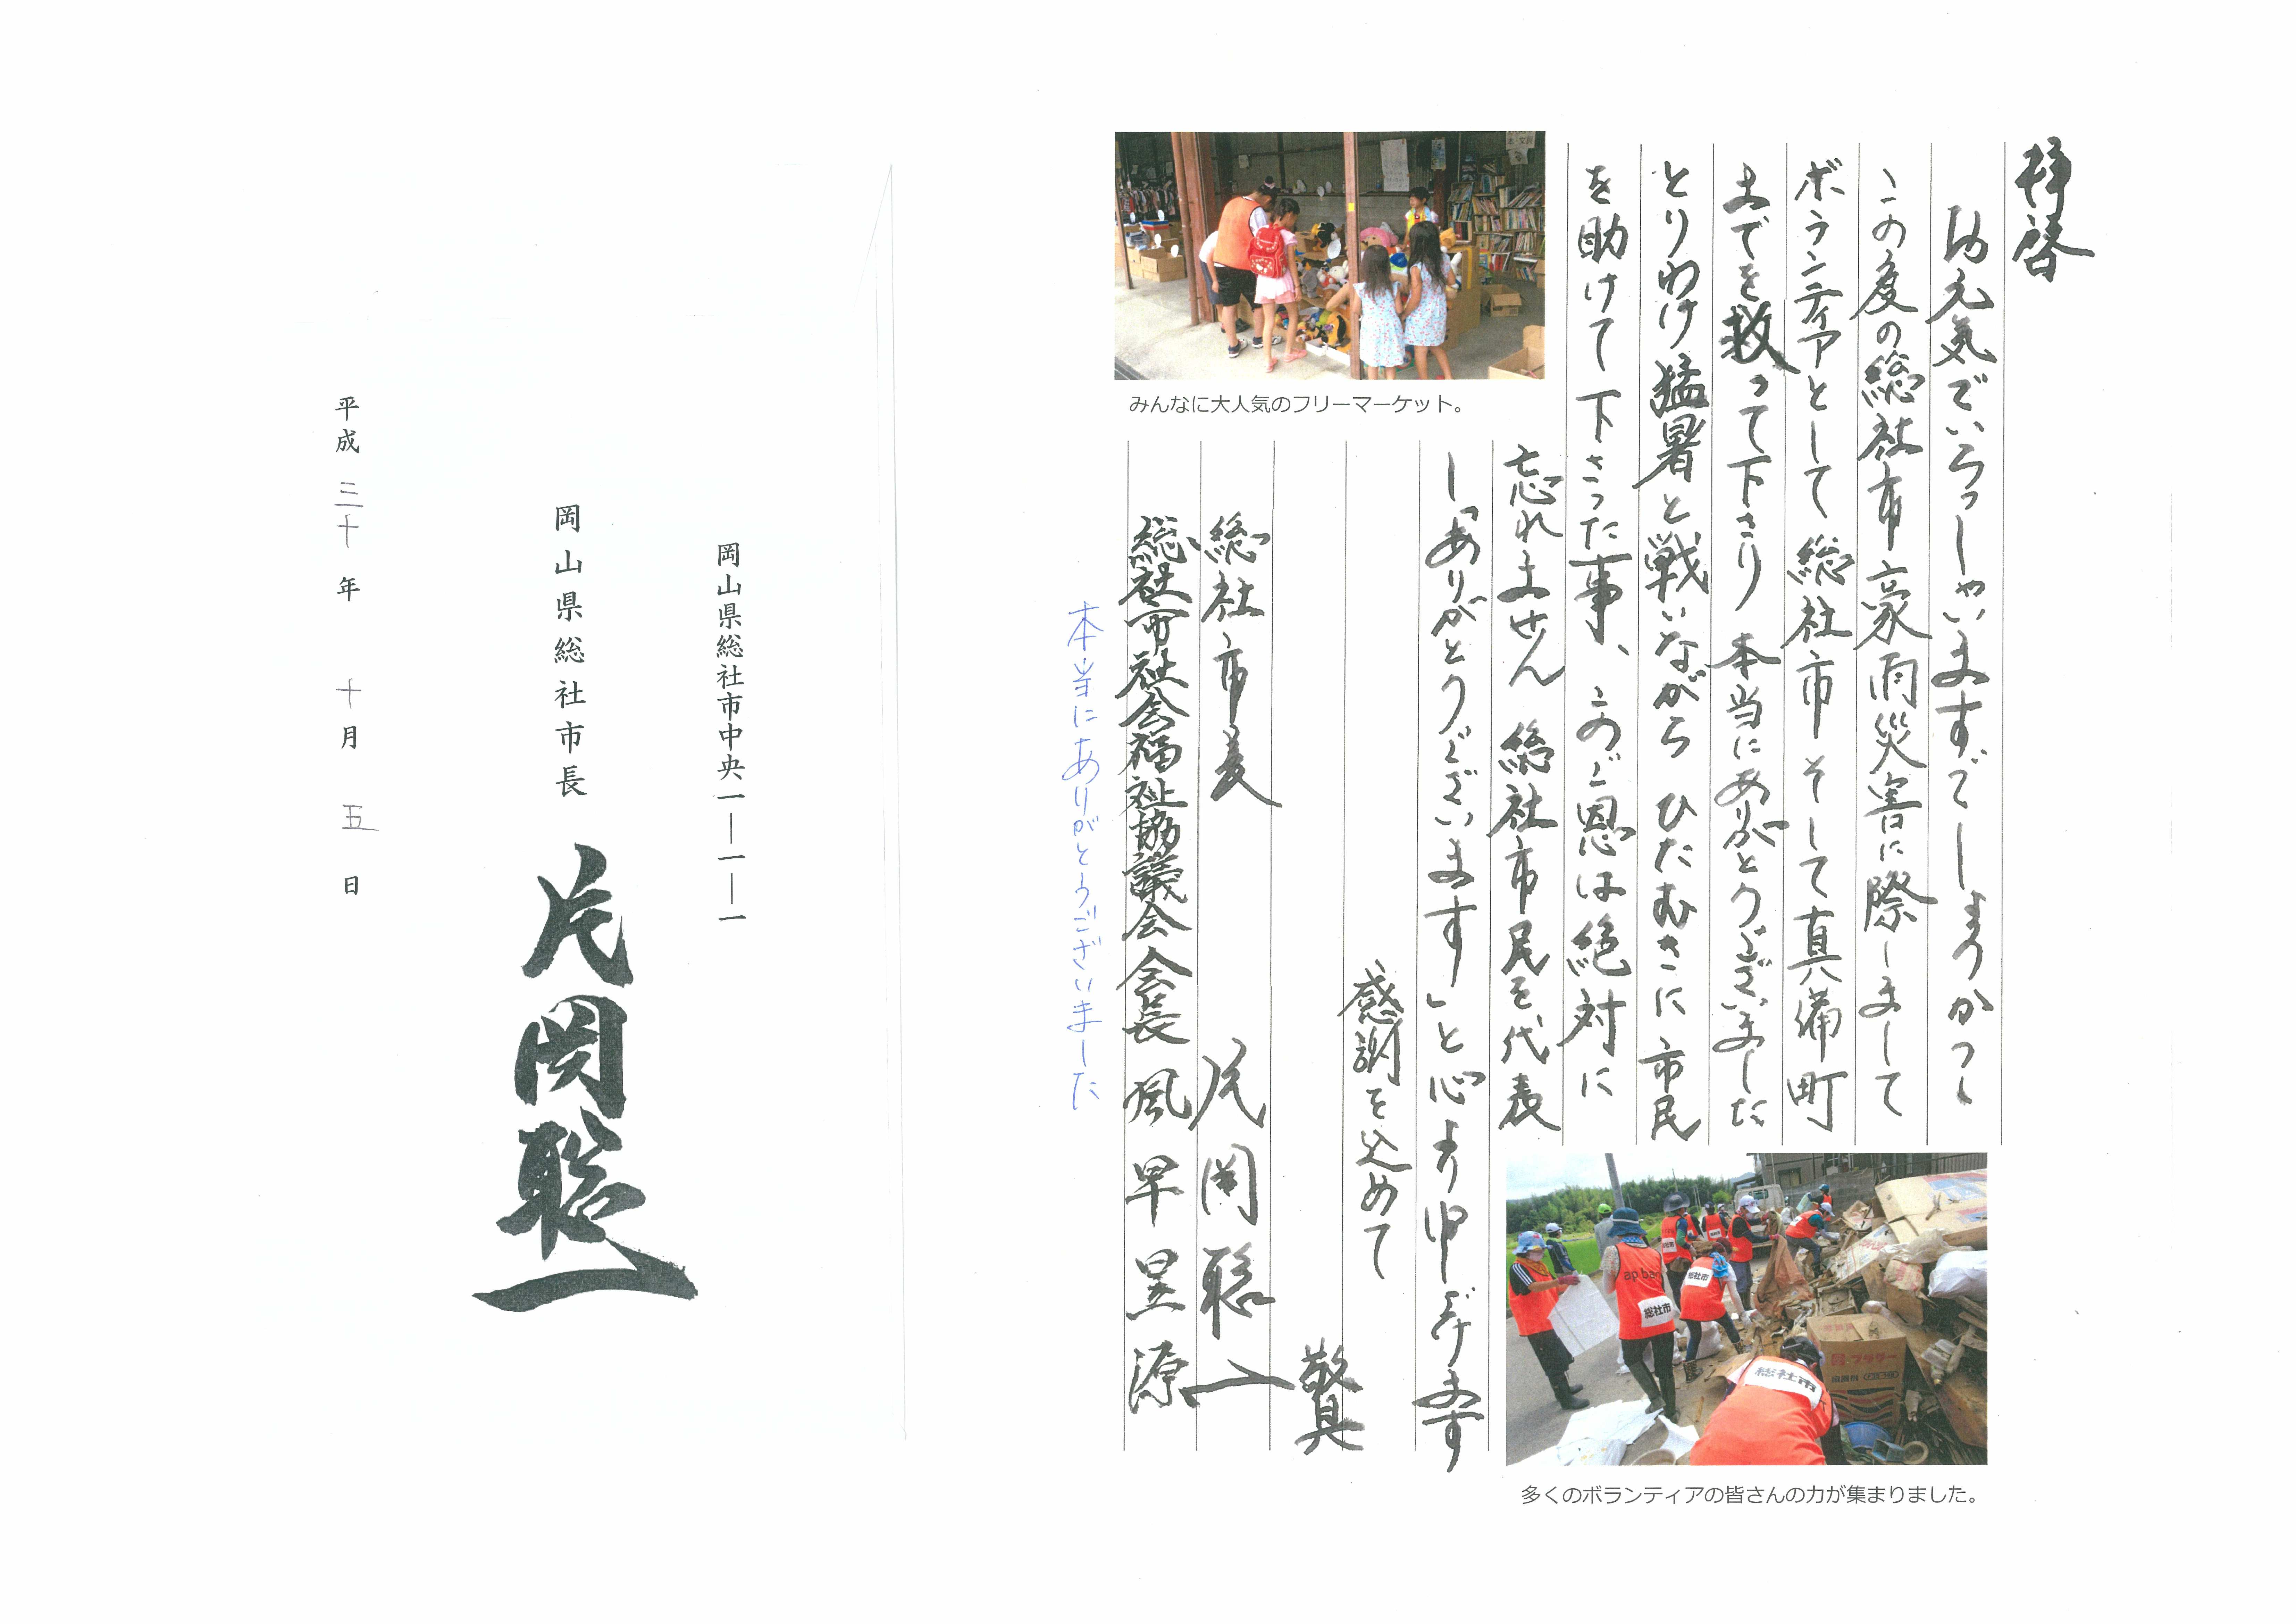 拝啓
お元気でいらっしゃいますでしょうか
この度の総社市豪雨災害に際しまして
ボランティアとして総社市そして真備町
までを救って下さり本当にありがとうございました
とりわけ猛暑と戦いながらひたむきに市民
を助けて下さった事、このご恩は絶対に
忘れません 総社市民を代表
し「ありがとうございます」と心より申し上げます
感謝を込めて
敬具
総社市長 片岡聡一
総社市社会福祉協議会会長 風早昱源
本当にありがとうございました
みんなに大人気のフリーマーケット。
多くのボランティアの皆さんの力が集まりました。
総社市
総社市
総社市
総社市
ap ba
岡山県総社市中央一―一―一
岡山県総社市長 片岡聡一
平成三十年 十月 五日